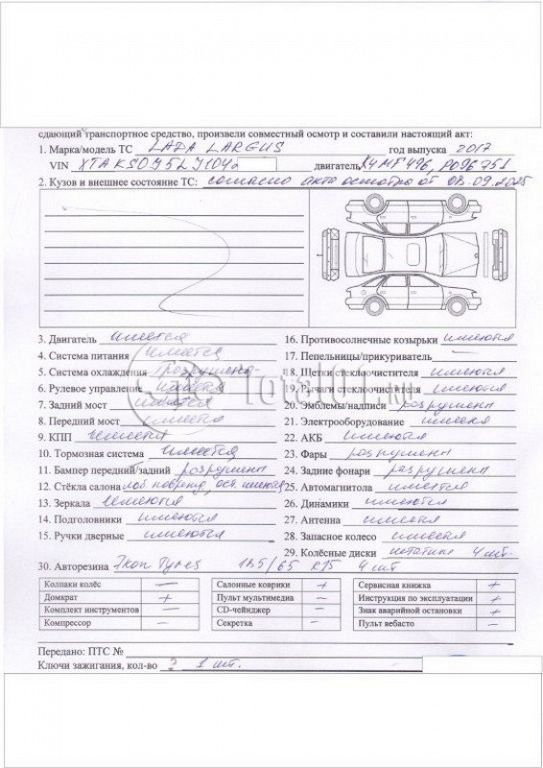 сдающий транспортное средство, произвели совместный осмотр и составили настоящий акт:
1. Марка/модель ТС LADA LARGUS год выпуска 2017
VIN XTAKS0J5LJ1042 двигатель K4MF496, P096751
2. Кузов и внешнее состояние ТС: согласно акта осмотра от 08.09.2025
3. Двигатель имеется
4. Система питания имеется
5. Система охлаждения разрушена
6. Рулевое управление имеется
7. Задний мост имеется
8. Передний мост имеется
9. КПП имеется
10. Тормозная система имеется
11. Бампер передний/задний разрушен
12. Стёкла салона лоб поврежд, ост. имеются
13. Зеркала имеются
14. Подголовники имеются
15. Ручки дверные имеются
16. Противосолнечные козырьки имеются
17. Пепельницы/прикуриватель —
18. Щетки стеклоочистителя имеются
19. Рычаги стеклоочистителя имеются
20. Эмблемы/надписи разрушен
21. Электрооборудование имеется
22. АКБ имеются
23. Фары разрушен
24. Задние фонари разрушен
25. Автомагнитола имеется
26. Динамики имеются
27. Антенна имеется
28. Запасное колесо имеется
29. Колёсные диски штатные 4 шт.
30. Авторезина Ikon Tyres 185/65 R15 4 шт
Колпаки колёс — Салонные коврики + Сервисная книжка +
Домкрат + Пульт мультимедиа — Инструкция по эксплуатации +
Комплект инструментов — CD-чейнджер — Знак аварийной остановки +
Компрессор — Секретка — Пульт вебасто —
Передано: ПТС №
Ключи зажигания, кол-во 1 шт.